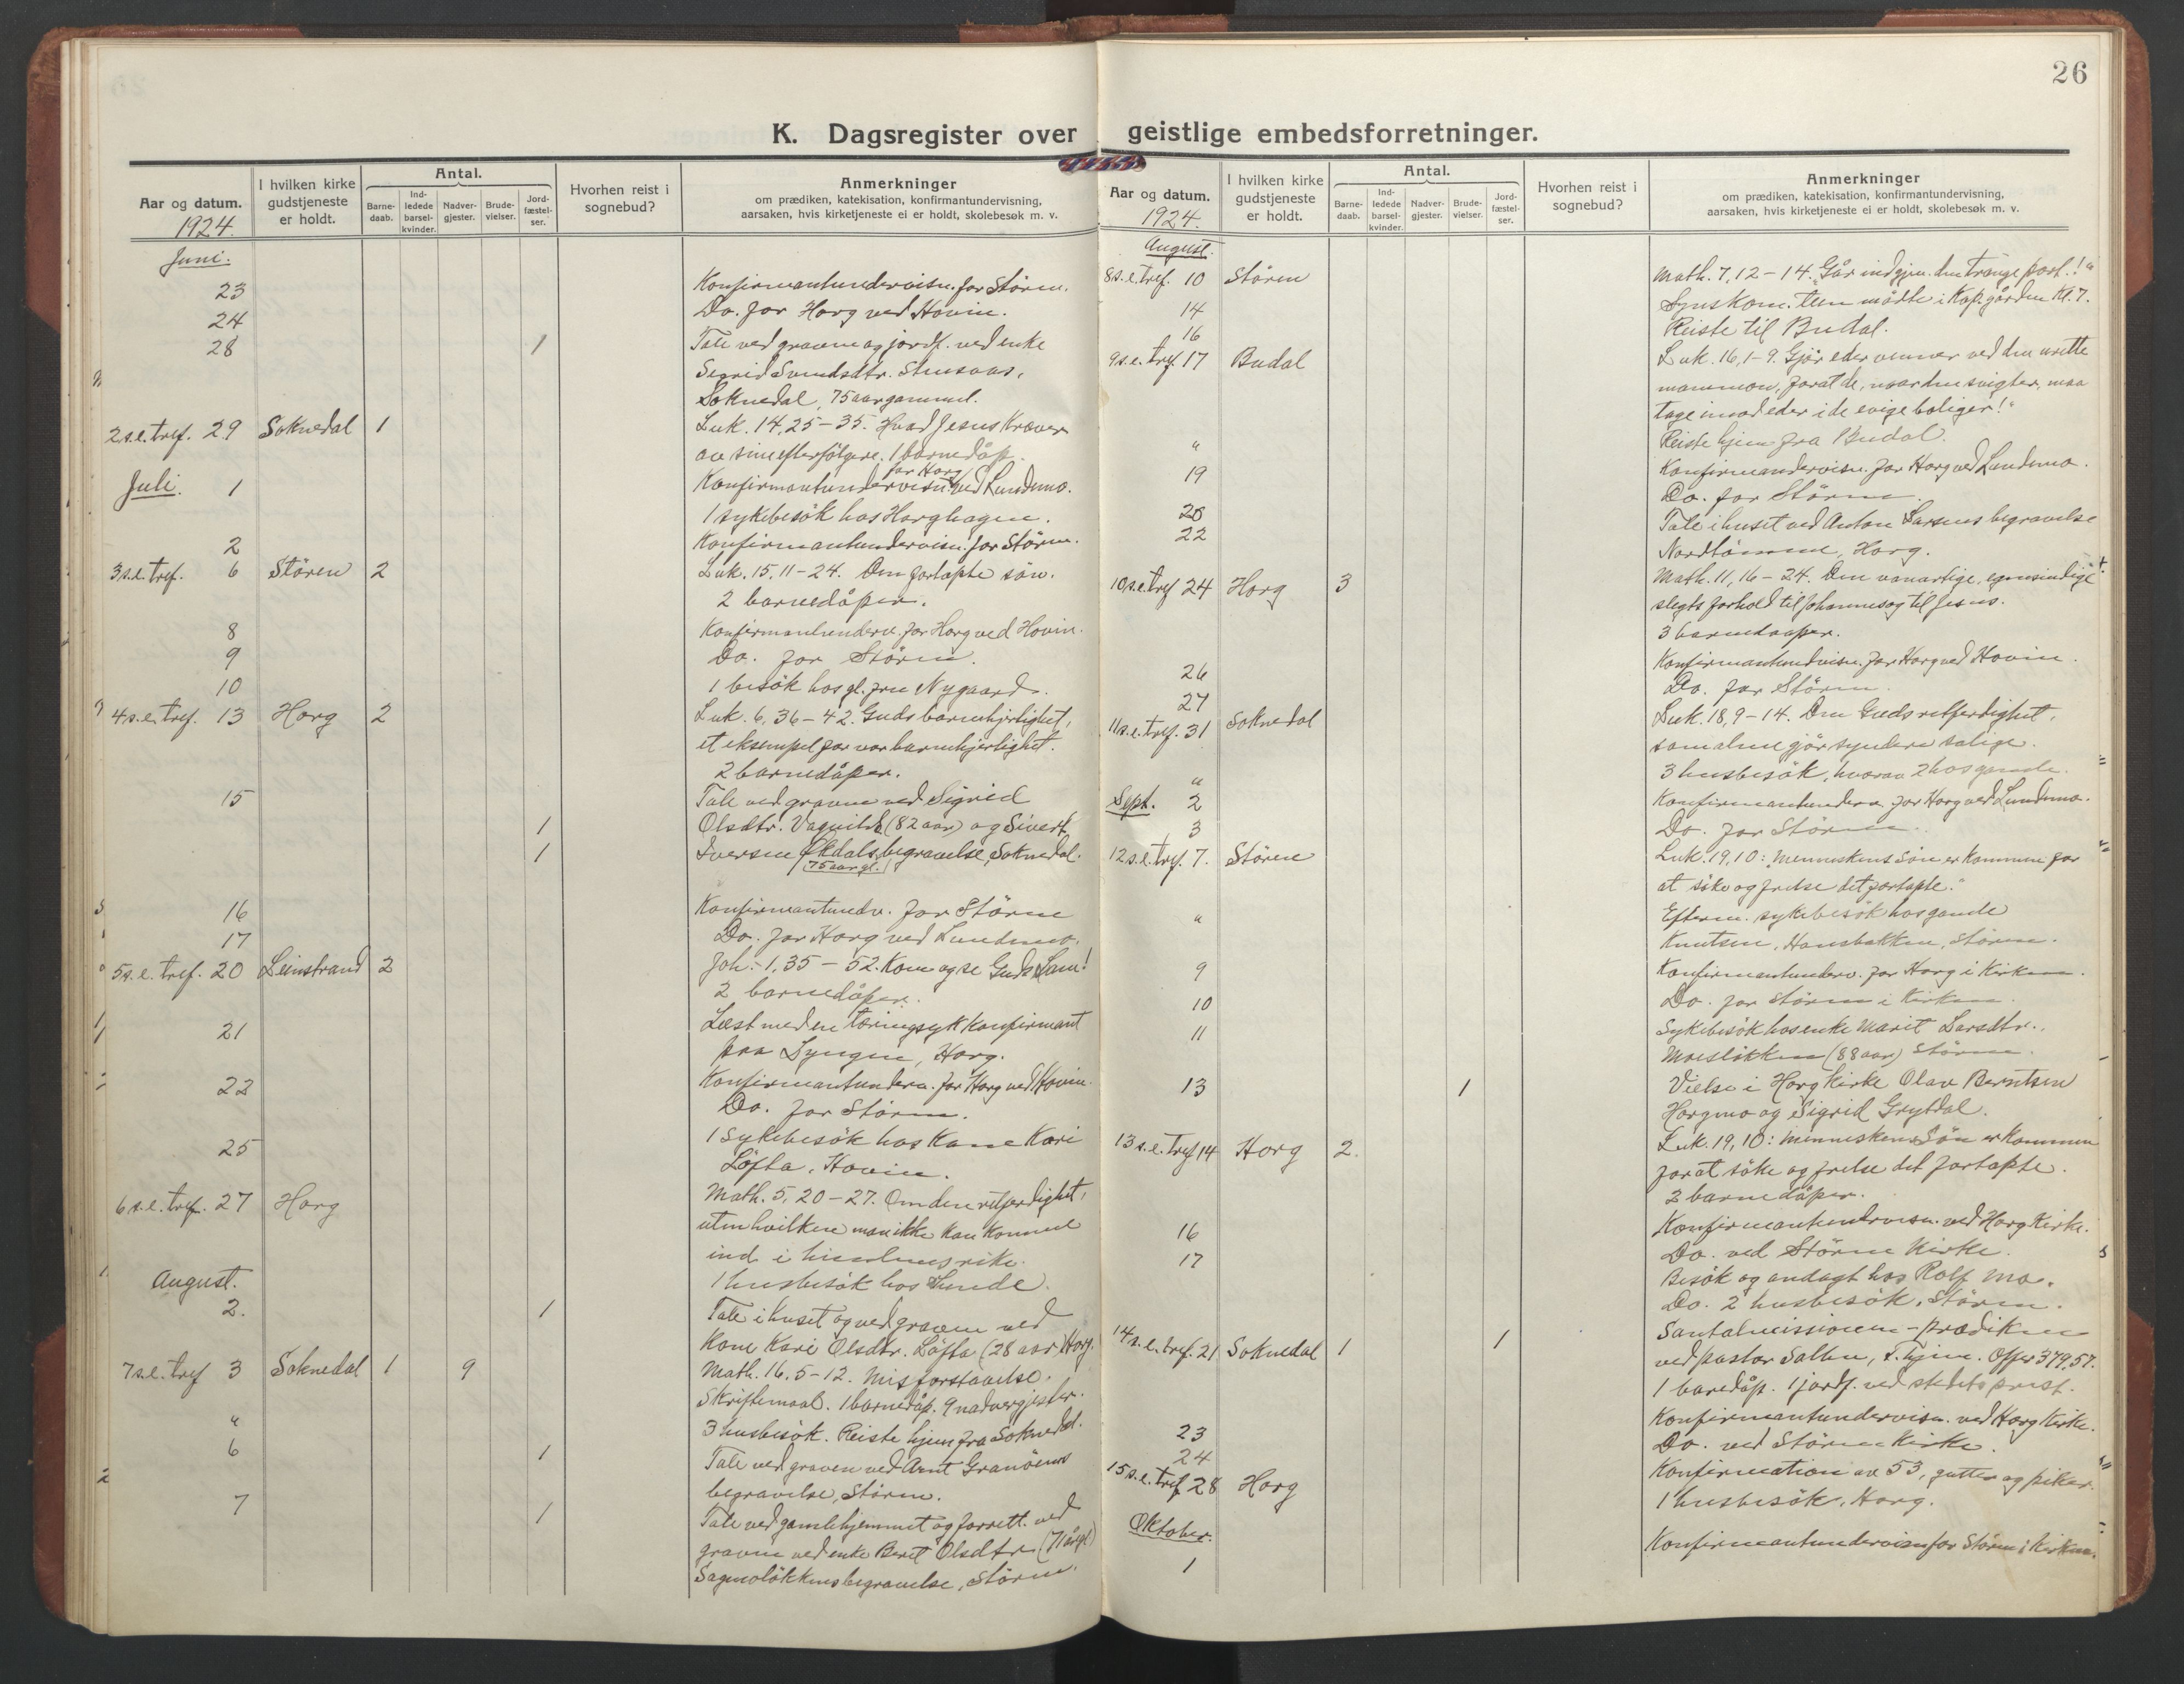 26
K. Dagsregister over geistlige embedsforretninger.
Aar og datum.
1924.
I hvilken kirke gudstjeneste er holdt.
Antal.
Barne-daab.
Ind-ledede barsel-kvinder.
Nadver-gjester.
Brude-vielser.
Jord-fæstel-ser.
Hvorhen reist i sognebud?
Anmerkninger
om prædiken, katekisation, konfirmantundervisning,
aarsaken, hvis kirketjeneste ei er holdt, skolebesøk m. v.
Juni.
23 Konfirmantundervisn. for Stören.
24 Do. for Horg ved Hovin.
28 1 Tale ved graven og jordf. ved enke
Sigrid Svendsdtr.
Soknedal, 75 aar gammel.
2 s.e. tref. 29 Soknedal 1 Luk. 14,25-35. Hvad Jesus kræver
av sine efterfölgere. 1 barnedåp.
Juli. 1 Konfirmantundervisn. for Horg ved Lundemo.
1 sykebesök hos Horghagen.
2 Konfirmantundervisn. for Stören.
3 s.e. tref. 6 Stören 2 Luk. 15,11-24. Den fortapte sön.
2 barnedåper.
8 Konfirmantunderv. for Horg ved Hovin.
9 Do. for Stören.
10 1 besök hos gl. fru Nygaard.
4 s.e. tref. 13 Horg 2 Luk. 6,36-42. Guds barmhjertighet,
et eksempel for vor barmhjertighet.
2 barnedåper.
15 Tale ved graven ved Sigrid
1 Olsdtr. (82 aar) og Sivert
1 Iversen begravelse, Soknedal.
75 aar gl.
16 Konfirmantunderv. for Stören
17 Do. for Horg ved Lundemo.
5 s.e. tref. 20 Leinstrand 2 Joh. 1,35-52. Kom og se Guds Lam!
2 barnedåper.
21 Læst med en tæringsyk konfirmant
paa Lyngen, Horg.
22 Konfirmantunderv. for Horg ved Hovin.
Do. for Stören.
25 1 Sykebesök hos Kone Kari
Löfta, Hovin.
6 s.e. tref. 27 Horg Math. 5,20-27. Om den retferdighet,
uten hvilken man ikke kan komme
ind i himlens rike.
1 husbesök hos
August.
2. 1 Tale i huset og ved graven ved
Kone Kari Olsdtr. Löfta (28 aar) Horg.
7 s.e. tref 3 Soknedal 1 9 Math. 16,5-12. Misforstaaelse.
Skriftemaal. 1 barnedåp. 9 nadvergjester.
" 3 husbesök. Reiste hjem fra Soknedal.
6 1 Tale ved graven ved Arnt Granöiens
begravelse, Stören.
7 1 Tale ved gamlehjemmet og forrett. ved
graven ved enke Beret Olsdtr (71 år gl)
begravelse, Stören.
Aar og datum.
1924.
I hvilken kirke gudstjeneste er holdt.
Antal.
Barne-daab.
Ind-ledede barsel-kvinder.
Nadver-gjester.
Brude-vielser.
Jord-fæstel-ser.
Hvorhen reist i sognebud?
Anmerkninger
om prædiken, katekisation, konfirmantundervisning,
aarsaken, hvis kirketjeneste ei er holdt, skolebesøk m. v.
August.
8 s.e. tref. 10 Stören Math. 7,12-14. "Går ind gjen. den trange port!"
14 Synskom. möte i Kap. gården Kl. 7.
16 Reiste til Budal.
9 s.e. tref 17 Budal Luk. 16,1-9. Gjör eder venner ved den urette
mammon, forat de, naar den svigter, maa
tage imod eder i de evige boliger!"
" Reiste hjem fra Budal.
19 Konfirmandervisn. for Horg ved Lundemo.
20 Do. for Stören.
22 Tale i huset ved Anton Larsens begravelse
Horg.
10 s.e. tref 24 Horg 3 Math. 11,16-24. Den vanartige, egensindige
slegts forhold til Johannes og til Jesus.
3 barnedaaper.
26 Konfirmantundvisn. for Horg ved Hovin.
27 Do. for Stören.
11 s.e. tref. 31 Soknedal Luk. 18,9-14. Den Guds retferdighet,
som alene gjör syndere salige.
" 3 husbesök, hvorav 2 hos gamle.
Sept. 2 Konfirmantunderv. for Horg ved Lundemo.
3 Do. for Stören.
12 s.e. tref. 7. Stören Luk. 19,10: Menneskens sön er kommen for
at söke og frelse det fortapte."
" Efterm. sykebesök hos gamle
Knutsen, Hansbakken, Stören.
9 Konfirmantunderv. for Horg i Kirken.
10 Do. for Stören i Kirken.
11 Sykebesök hos enke Marit Larsdtr.
Moslökken (88 aar) Stören.
13 1 Vielse i Horg Kirke Olav Berntsen
Horgmo og Sigrid Grytdal.
13 s.e. Tref 14 Horg 2. Luk. 19,10: Menneskens Sön er kommen
forat söke og frelse det fortapte.
2 barnedåper.
16 Konfirmantundervisn. ved Horg Kirke.
17 Do. ved Stören Kirke.
Besök og andagt hos Rolf Mo.
Do. 2 husbesök, Stören.
14 s.e. tref. 21 Soknedal 1 1 Santalmissionen-prædiken
ved pastor Offer 379,57.
1 baredåp. 1 jordf. ved stedets prest.
23 Konfirmantundervisn. ved Horg Kirke.
24 Do. ved Stören Kirke.
15 s.e. tref 28 Horg Konfirmation av 53, gutter og piker.
1 husbesök, Horg.
Oktober.
1 Konfirmantundervisn for Stören i Kirken.